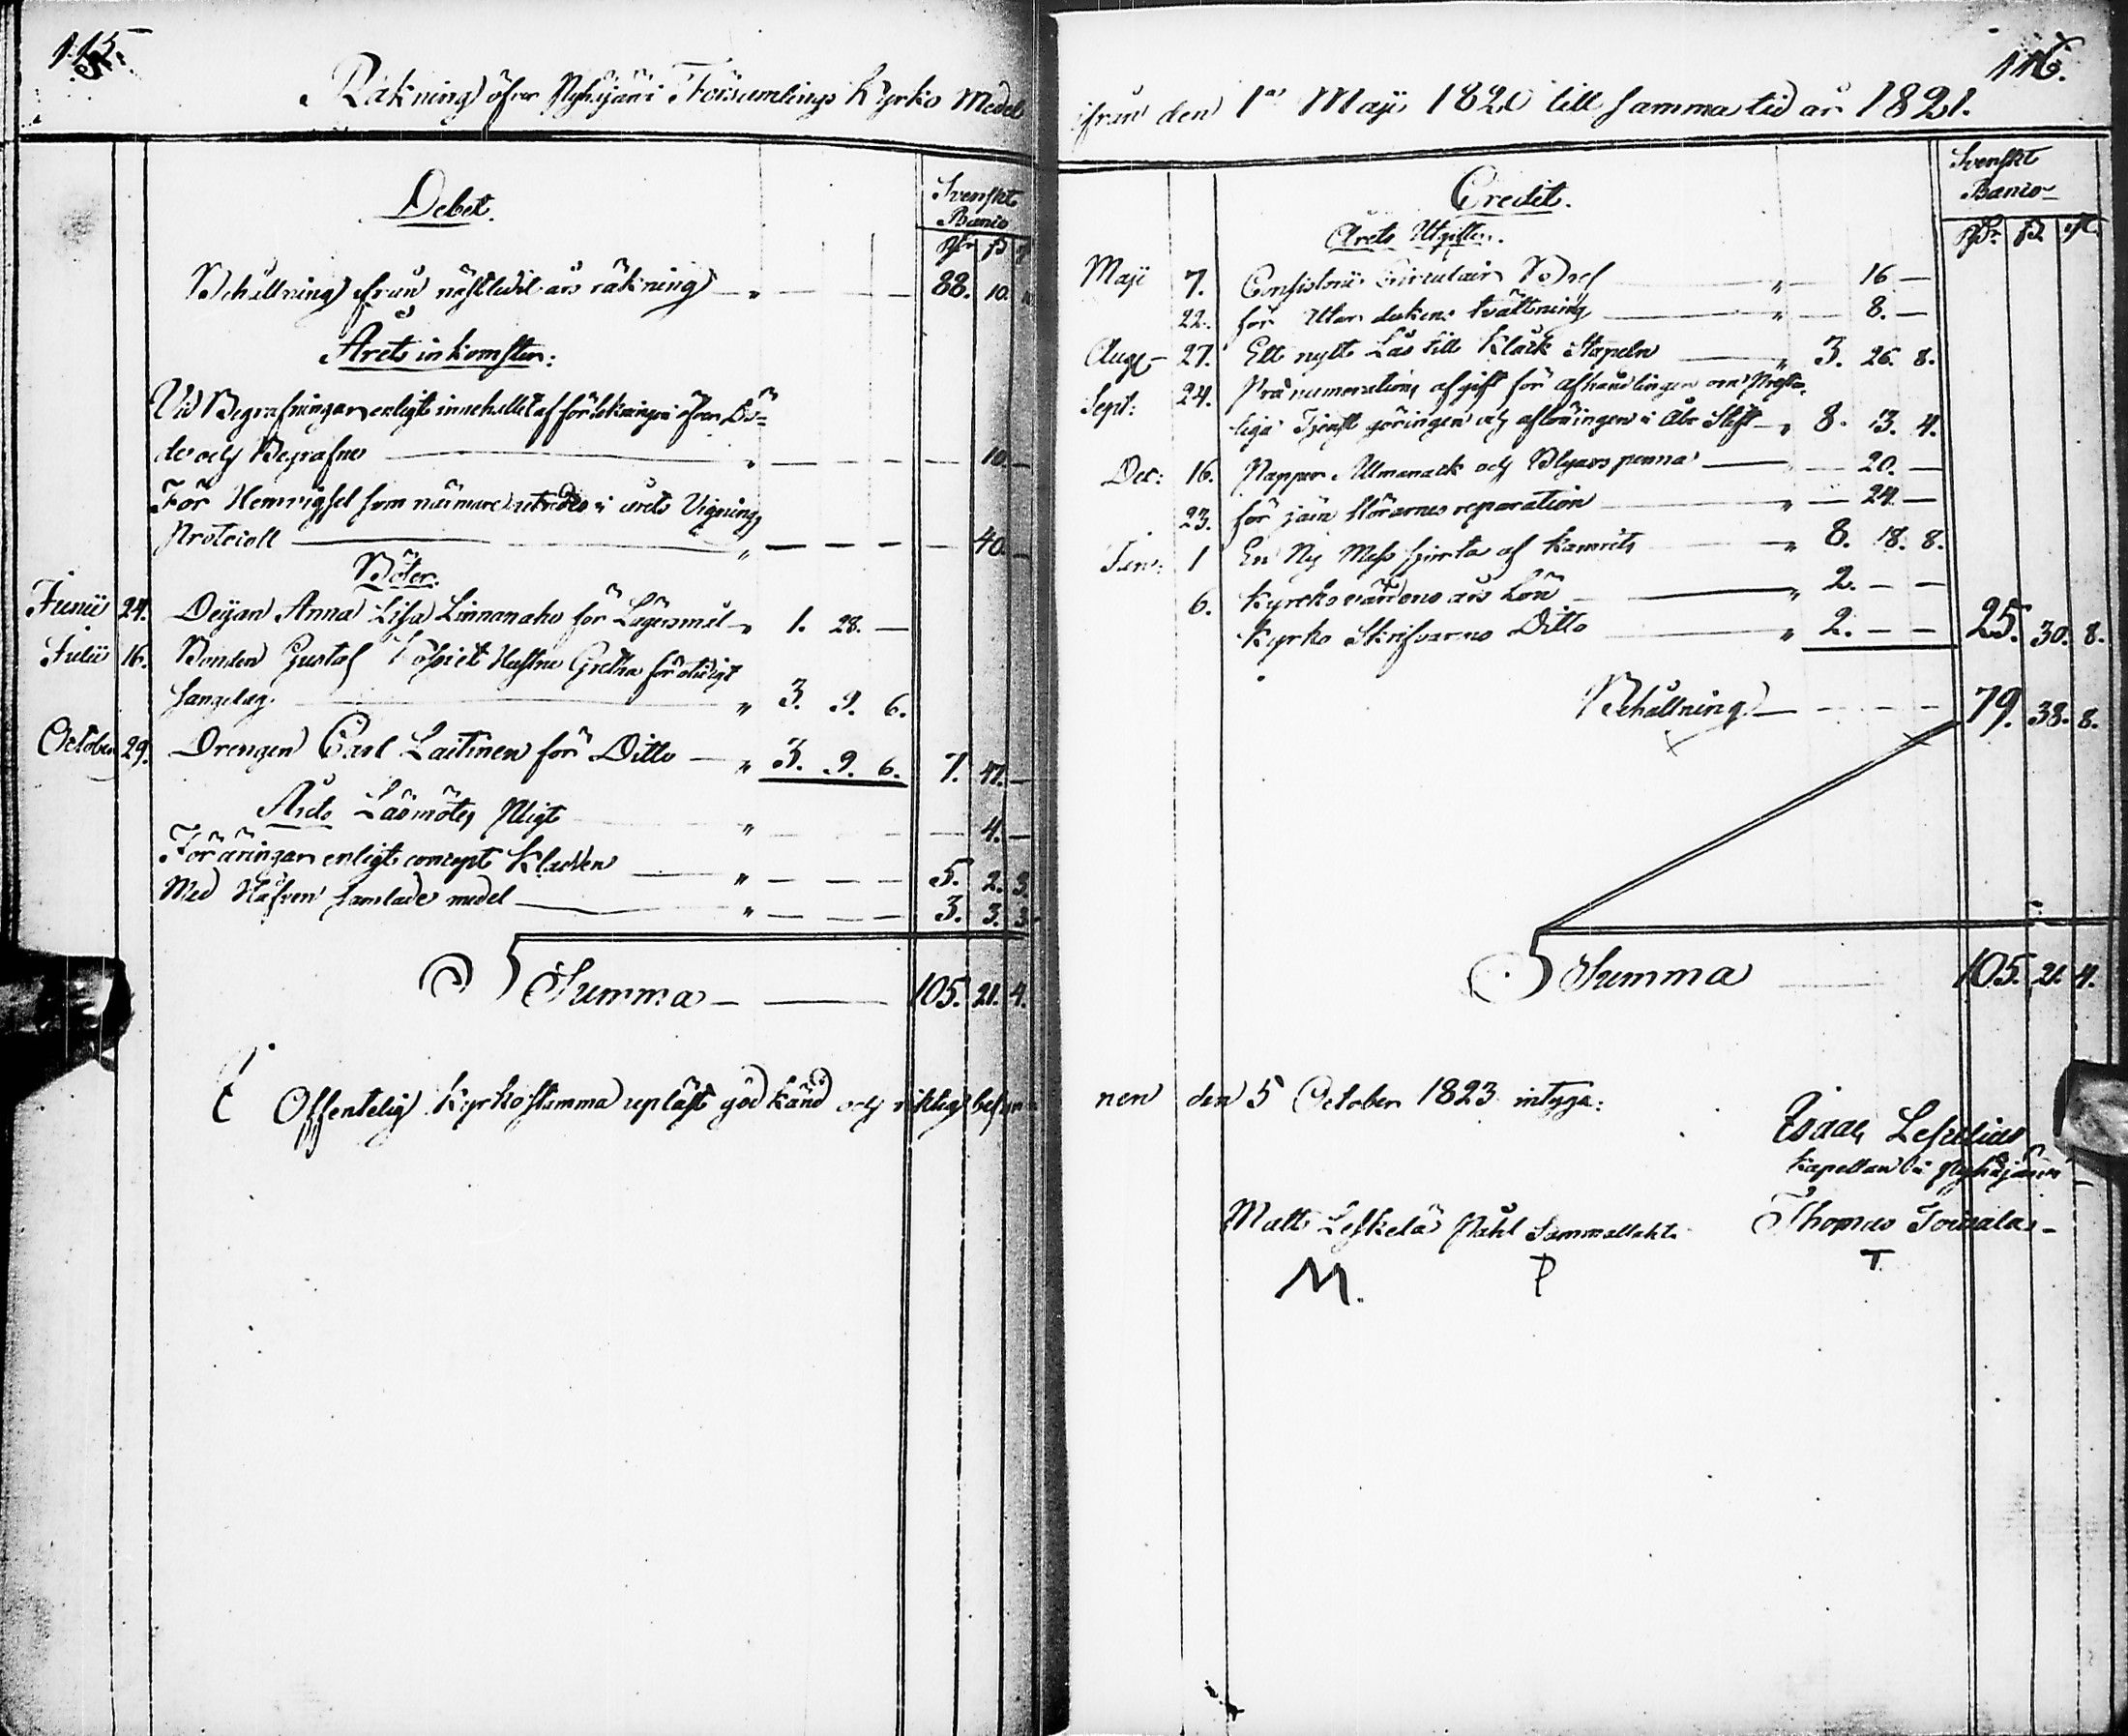 115.
Räkning öfver Pyhäjärvi Församlings Kyrko Medel
Debet.
Svenskt
Banco
Rdr ß
Behållning från nästledit års räkning " 88. 10.
Årets inkomster:
Vid Begrafningar enligt innehållet af förtekningen öfver Dö=
de och Begrafne " — 10. —
För Hemvigsel som närmare utredes i årets Vignings
Protocoll " — 40. —
Böter.
Junii 24. Deijan Anna Lisa Linnanaho för Lägersmål " 1. 28. —
Julii 16. Bonden Gustaf Hustru Gretha för otidigt
sängelag. " 3. 9. 6.
October 29. Drengen Carl Laitinen för Ditto " 3. 9. 6. 7. 47. —
Årets Läsmötes Pligt " — 4. —
Föräringar enligt concept Kladden " 5. 2. 3.
Med Håfven samlade medel " 3. 3. 3.
Summa 105. 21. 4.
Offentelig Kyrkostämma upläst god känd och riktig befun
116.
ifrån den 1a Maji 1820 till samma tid år 1821.
Credit.
Svenskt
Banco
Årets Utgifter.
Rdr. ß. rst.
Maji 7. Consistorii Circulair Bref " — 16 —
22. för Altar dukens tvättning " — 8. —
Aug: 27. Ett nytt Lås till Klåck Stapeln " 3. 26. 8.
Sept: 24. Pränumerations afgift för afhandlingen om Presta
liga Tjenst göringen och aflöningen i Åbo Stift " 8. 13. 4.
Dec: 16. Papper Allmanack och Blyars penna " — 20. —
23. för jern störarnes reparation " — 24 —
Jan: 1 En Ny Mess skjorta af Kamrits " 8. 18. 8.
6. Kyrckovärdens års Lön " 2. — —
Kyrko Skrifvarens Ditto " 2. — — 25. 30. 8.
Behållning 79. 38. 8.
Summa 105. 21. 4.
nen den 5 October 1823 intyga:
Isaac
Kapellan i Pyhäjärvi
Matts Leskelä Påhl Sammallahti Thomas
M. P T.